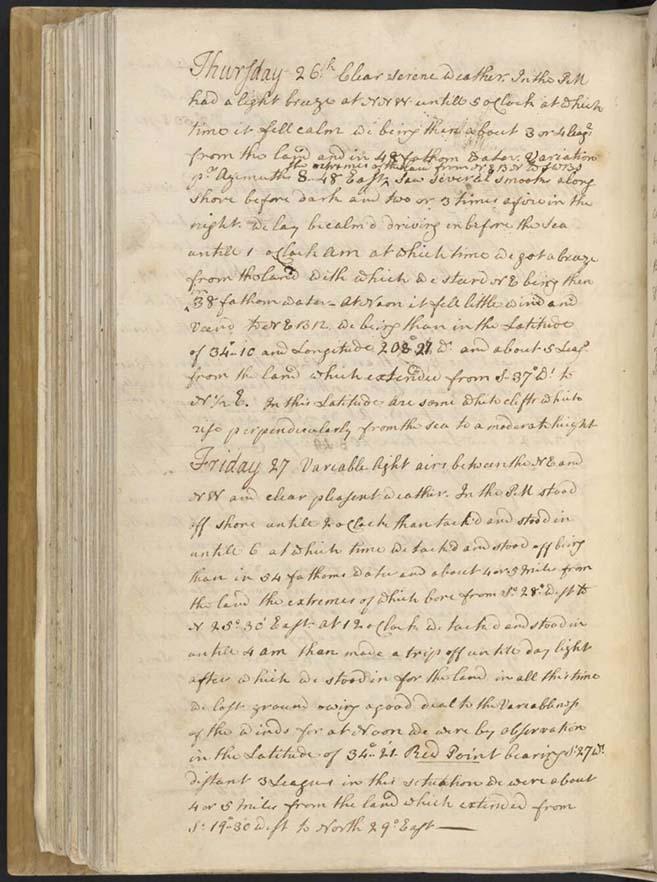 Thursday 26th Clear serene weather. In the PM
had a light breeze at NNW untill 5 oClock at which
time it fell calm we being then about 3 or 4 leags
from the land and in 48 fathom water. Variation
pr Azemuth 8..48 East, the extremes of the land from NEBN to SWBS
saw several smooks along
shore before dark and two or 3 times a fire in the
night. we lay becalm'd driving in before the sea
untill 1 oClock AM at which time we got a breeze
from the land with which we steer'd NE being then
in 38 fathom water - At Noon it fell little wind and
veer'd to NEBN. we being than in the Latitude
of 34°..10 and Longitude 208°..27 Wt and about 5 Leags
from the land which extended from S. 37° Wt to
N ½ E. In this Latitude are some white clifts which
rise perpendicularly from the sea to a moderate height
Friday 27 Variable light airs between the NE and
NW and clear pleasent weather. In the PM stood
off shore untill 2 oClock than tack'd and stood in
untill 6 at which time we tack'd and stood off being
than in 54 fathoms water and about 4 or 5 Miles from
the land the extremes of which bore from So 28° West to
N 25°..30' East. at 12 oClock we tack'd and stood in
untill 4 am than made a trip off untill day light
after which we stood in for the land in all this time
we lost ground owing a good deal to the Variableness
of the winds for at Noon we were by observation
in the Latitude of 34°..21 Red Point bearing S° 27 Wt
distant 3 Leagues in this situation we were about
4 or 5 Miles from the land which extended from
S° 19°..30 West to North 29° East —